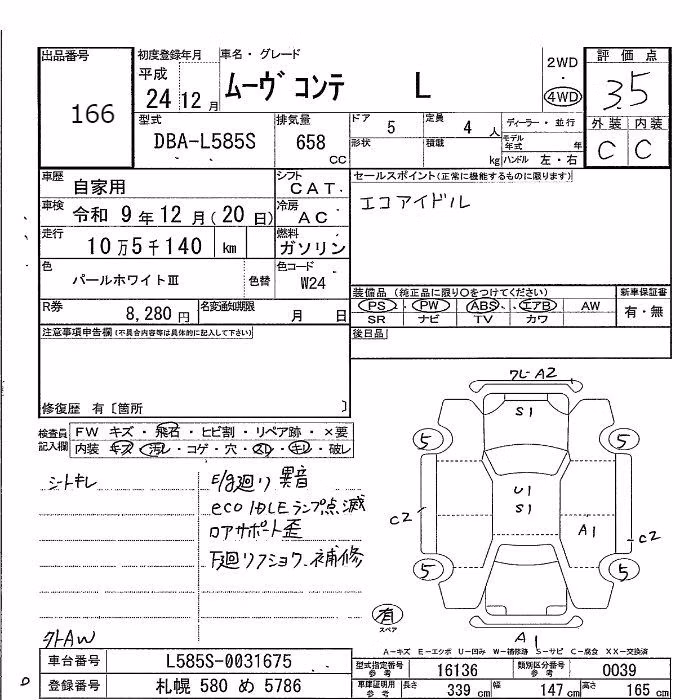 出品番号 初度登録年月 車名・グレード 2WD・4WD 評価点
166 平成 24 12月 ムーヴ コンテ L 3.5
型式 排気量 ドア 5 定員 4人 ディーラー・並行 外装 内装
DBA-L585S 658 CC 形状 積載 kg モデル年式 年 C C
ハンドル 左・右
車歴 自家用 シフト CAT. セールスポイント(正常に機能するものに限ります)
車検 令和 9年12月(20日) 冷房 AC エコアイドル
走行 10万5千140 km 燃料 ガソリン
色 パールホワイトⅢ 色替 色コード W24
装備品 (純正品に限り○をつけてください) 新車保証書
R券 8,280円 名変通知期限 月 日 PS・PW・ABS・エアB AW 有・無
SR ナビ TV カワ
注意事項申告欄(不具合内容等は具体的に記入して下さい) 後日品
修復歴 有〔箇所 〕
検査員記入欄 FW キズ・飛石・ヒビ割・リペア跡・×要
内装 キズ・汚レ・コゲ・穴・スレ・キレ・破レ
シートキレ
E/g廻り異音
eco IDLEランプ点滅
ロアサポート歪
下廻りフショク、補修
外AW
ワレA2
S1
5 5
U1
S1
C2 A1 C2
5 5
有
スペア
A1
A-キズ E-エクボ U-凹み W-補修跡 S-サビ C-腐食 XX-交換済
車台番号 L585S-0031675 型式指定番号 参考 16136 類別区分番号 参考 0039
登録番号 札幌 580 め 5786 車庫証明用 参考 長さ 339 cm 幅 147 cm 高さ 165 cm